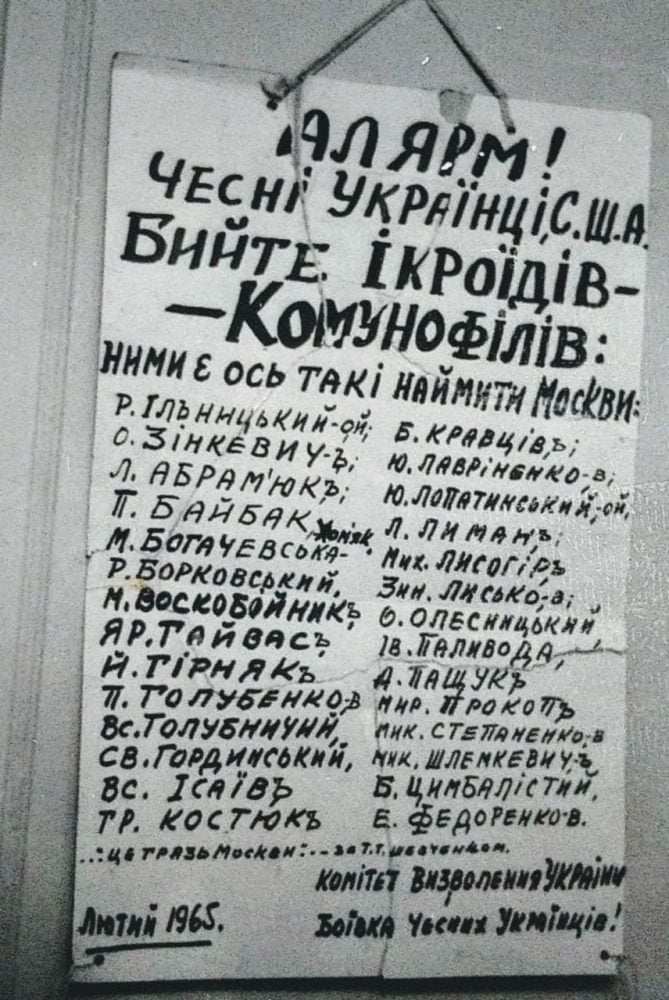 АЛЯРМ!
ЧЕСНІ УКРАЇНЦІ, С.Ш.А.
БИЙТЕ ІКРОЇДІВ-
-КОМУНОФІЛІВ:
НИМИ Є ОСЬ ТАКІ НАЙМИТИ МОСКВИ:
Р. ІЛЬНИЦЬКИЙ-ОЙ;
О. ЗІНКЕВИЧ-Ъ;
Л. АБРАМ'ЮКЪ;
П. БАЙБАК,
М. БОГАЧЕВСЬКА-Хомяк,
Р. БОРКОВСЬКИЙ,
М. ВОСКОБОЙНИКЪ
ЯР. ГАЙВАСЪ
Й. ГІРНЯКЪ
П. ГОЛУБЕНКО-В
ВС. ГОЛУБНИЧИЙ,
СВ. ГОРДИНСЬКИЙ,
ВС. ІСАЇВЪ
ГР. КОСТЮКЪ
Б. КРАВЦІВЪ;
Ю. ЛАВРІНЕНКО-В;
Ю. ЛОПАТИНСЬКИЙ-ОЙ,
Л. ЛИМАНЪ;
МИХ. ЛИСОГІРЪ
ЗИН. ЛИСЬКО-В;
О. ОЛЕСНИЦЬКИЙ,
ІВ. ПАЛИВОДА,
А. ПАЩУКЪ
МИР. ПРОКОПЪ
МИК. СТЕПАНЕНКО-В
МИК. ШЛЕМКЕВИЧ-Ъ
Б. ЦИМБАЛІСТИЙ,
Е. ФЕДОРЕНКО-В.
..:ЦЕ ГРЯЗЬ МОСКВИ:..- ЗА Т.Г. ШЕВЧЕНКОМ.
КОМІТЕТ ВИЗВОЛЕННЯ УКРАЇНИ
Лютий 1965.
Боївка Чесних Українців!